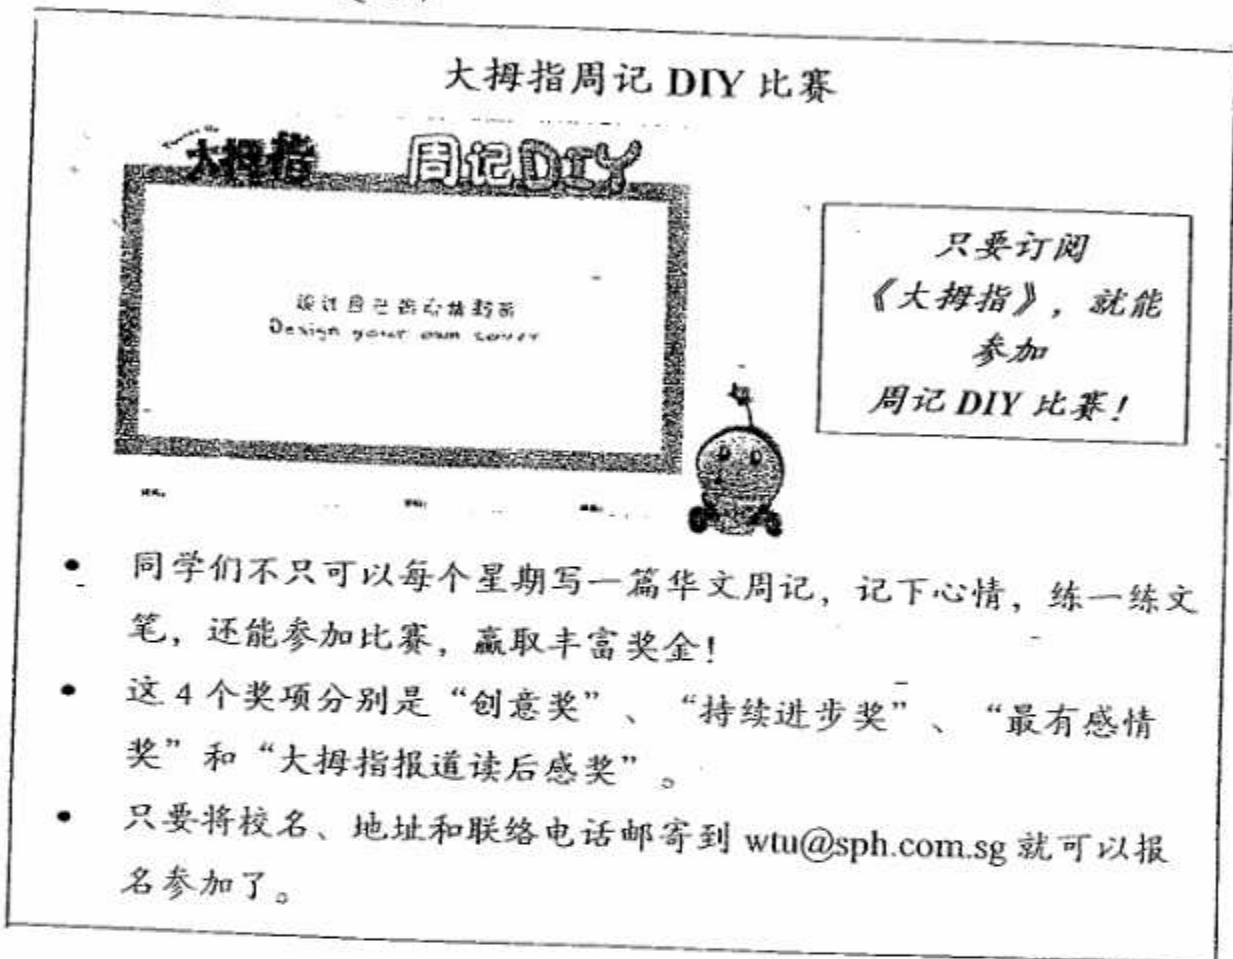 大拇指周记 DIY 比赛
大拇指 周记DIY
设计自己的心情封面
Design your own cover
只要订阅
《大拇指》，就能
参加
周记 DIY 比赛！
• 同学们不只可以每个星期写一篇华文周记，记下心情，练一练文
笔，还能参加比赛，赢取丰富奖金！
• 这 4 个奖项分别是“创意奖”、“持续进步奖”、“最有感情
奖”和“大拇指报道读后感奖”。
• 只要将校名、地址和联络电话邮寄到 wtu@sph.com.sg 就可以报
名参加了。